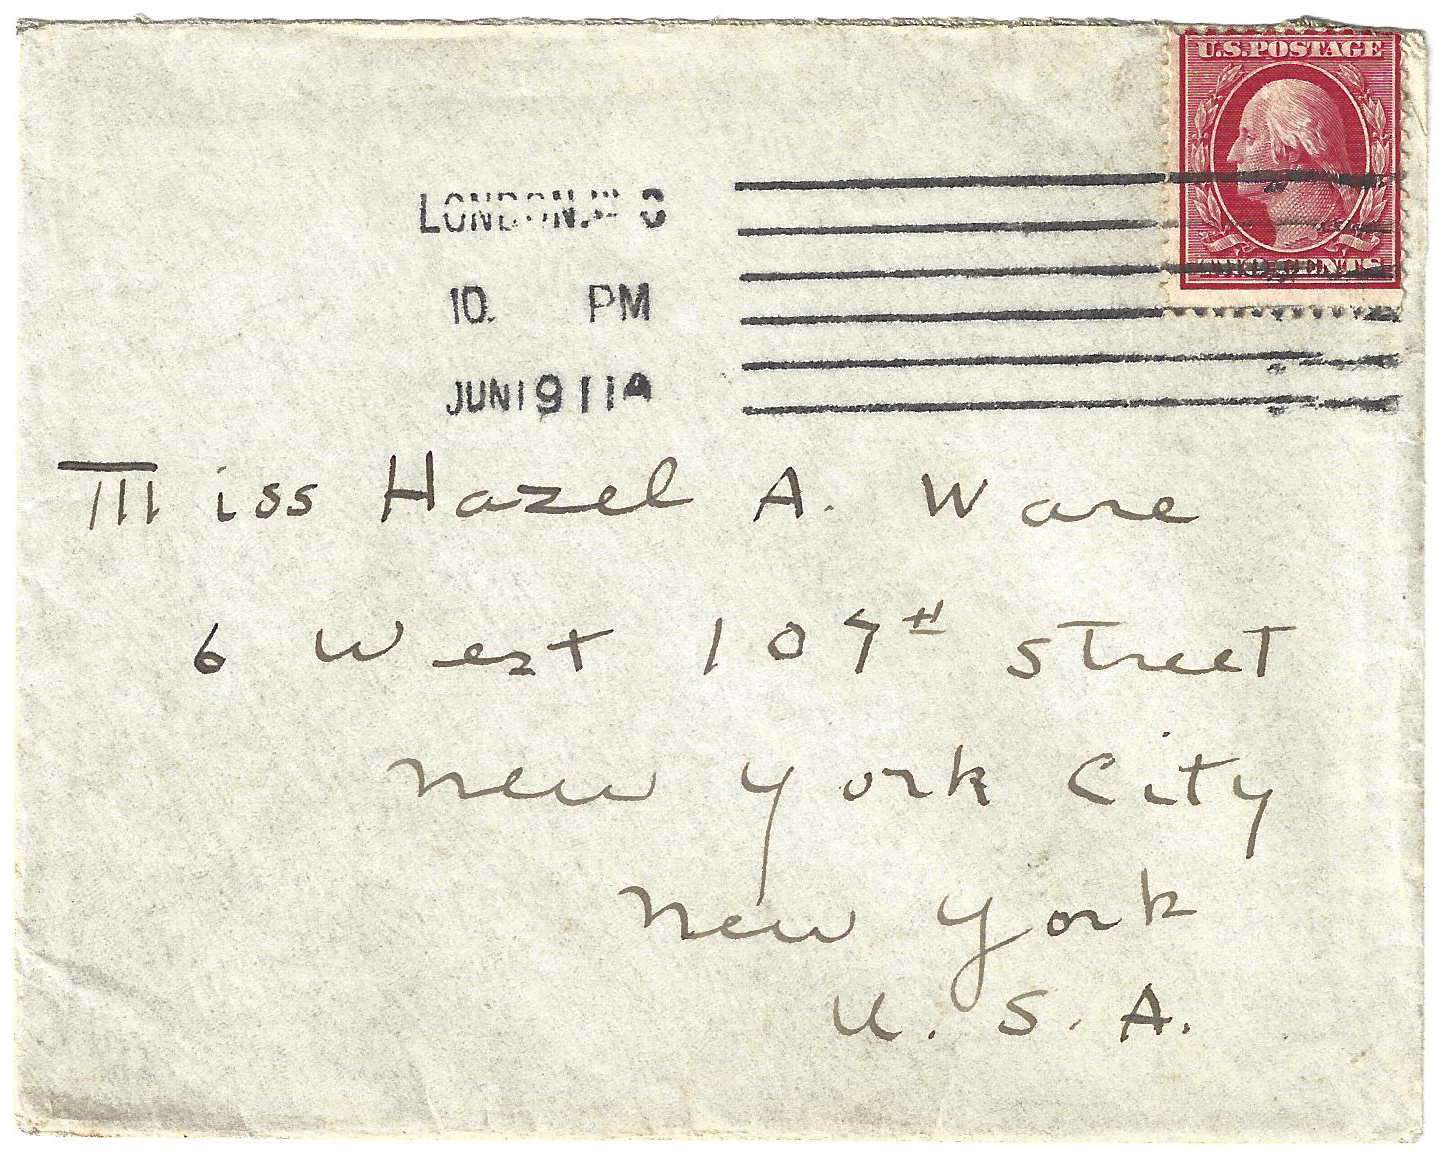 U.S. POSTAGE
TWO CENTS
LONDON.W C
10. PM
JUN 19 11 4
Miss Hazel A. Ware
6 West 107th Street
New York City
New York
U. S. A.